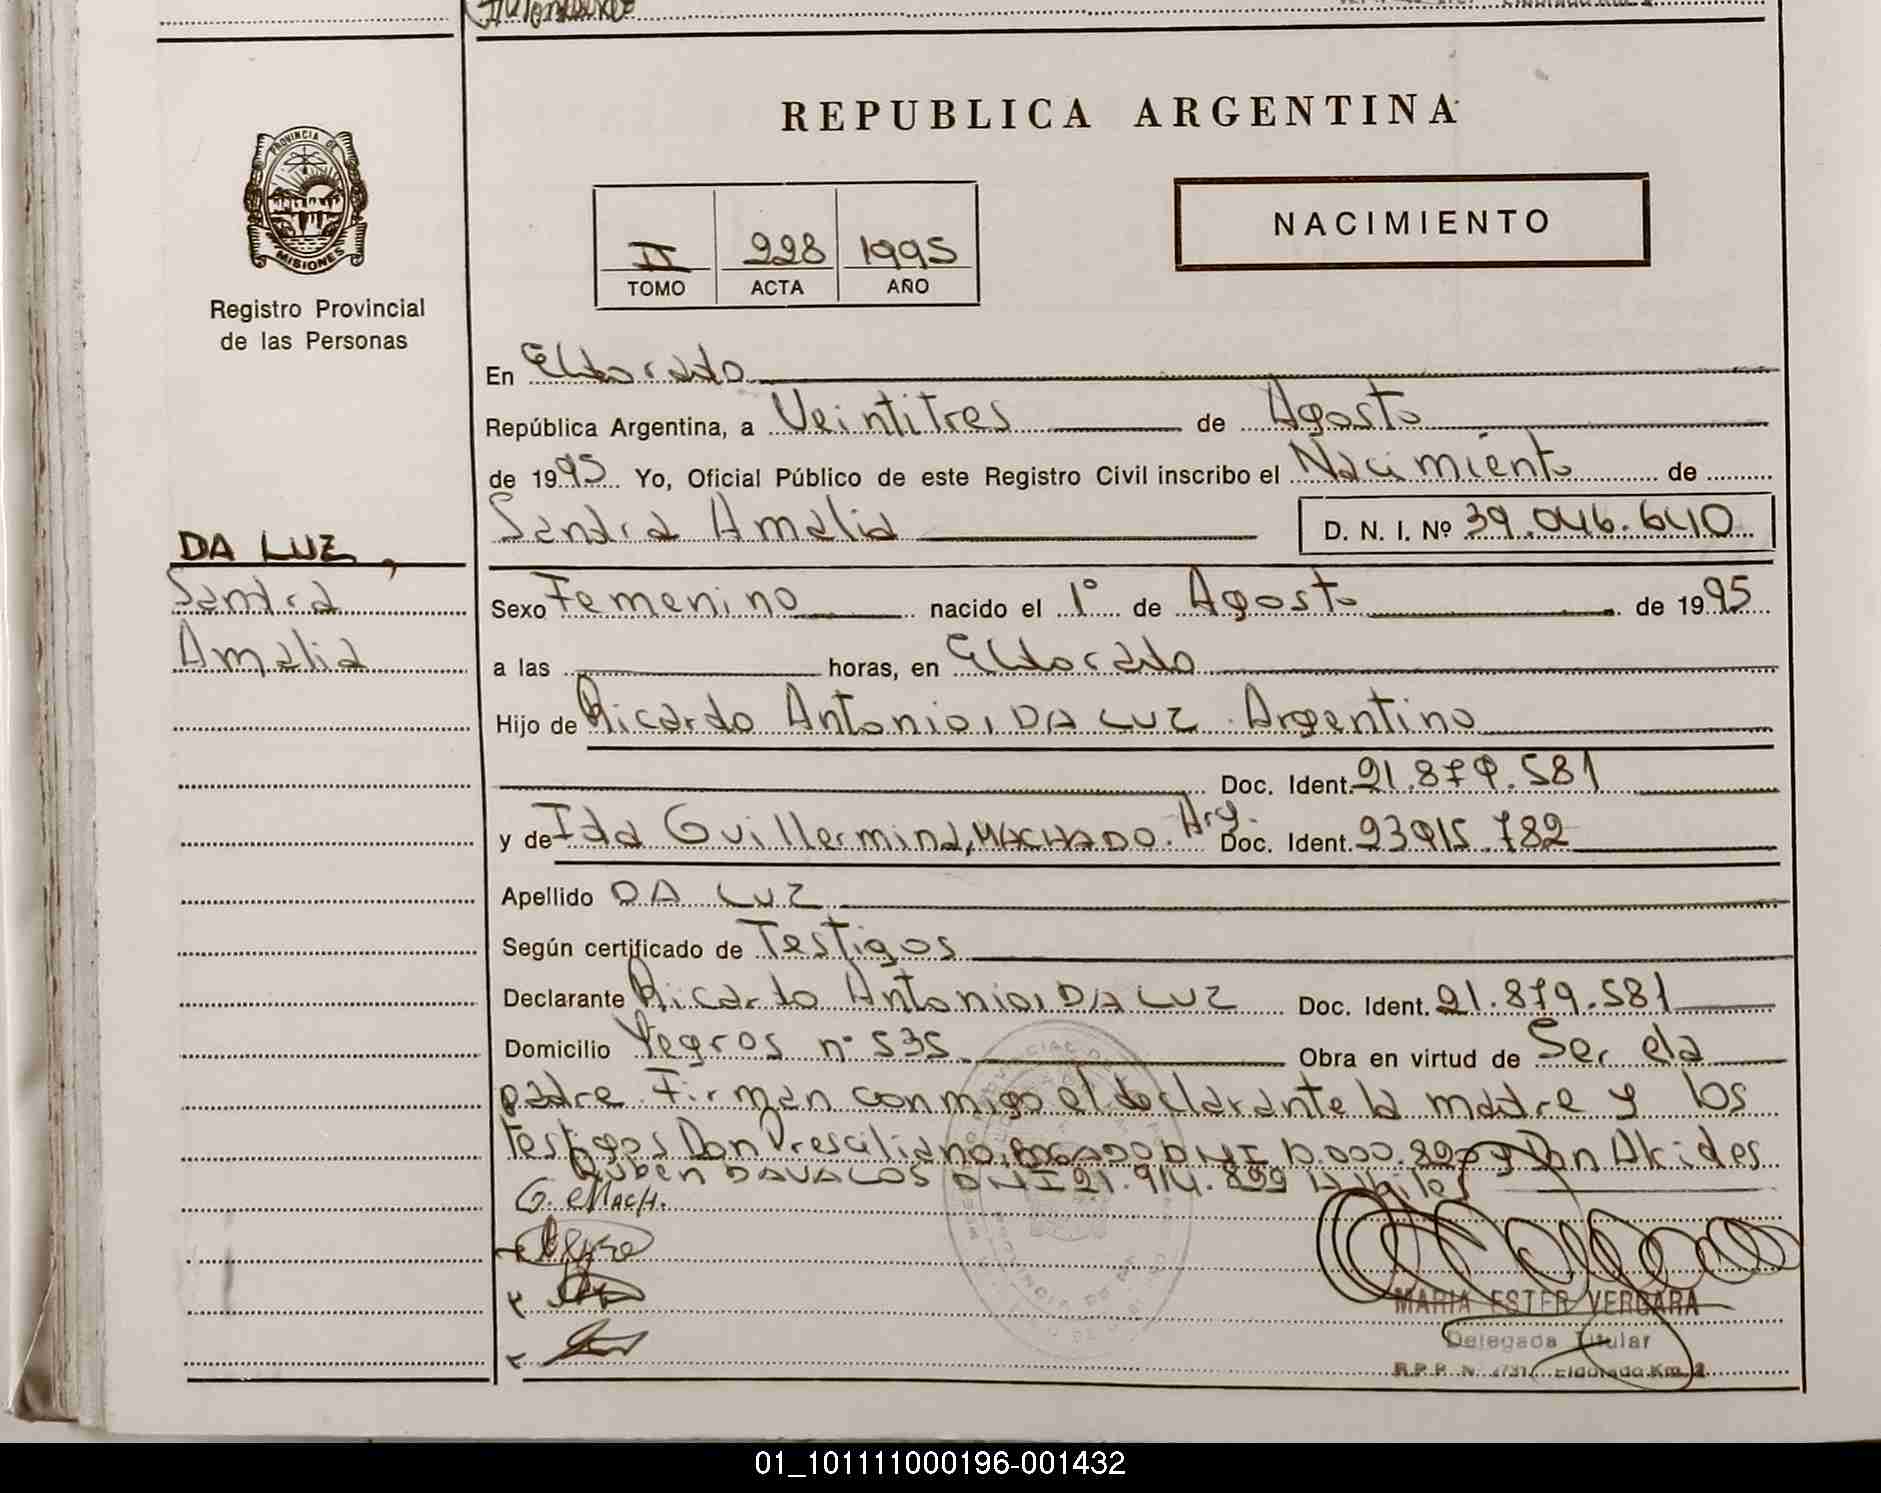 REPUBLICA ARGENTINA
PROVINCIA DE
MISIONES
Registro Provincial
de las Personas
II 228 1995
TOMO ACTA AÑO
NACIMIENTO
En Eldorado
República Argentina, a Veintitres de Agosto
de 1995 Yo, Oficial Público de este Registro Civil inscribo el Nacimiento de
Sandra Amalia D. N. I. Nº 39.046.640
DA LUZ,
Sandra
Amalia
Sexo Femenino nacido el 1º de Agosto de 1995
a las horas, en Eldorado
Hijo de Ricardo Antonio, DA LUZ. Argentino
Doc. Ident. 21.879.581
y de Ida Guillermina, MACHADO. Arg. Doc. Ident. 23915.782
Apellido DA LUZ
Según certificado de Testigos
Declarante Ricardo Antonio, DA LUZ Doc. Ident. 21.879.581
Domicilio Yegros nº 535 Obra en virtud de Ser el
padre. Firman conmigo el declarante la madre y los
testigos Don Presciliano, DNI Don Alcides
Ruben DAVALOS DNI 21.914.899 hábiles
G. Mach.
MARIA ESTER VERGARA
Delegada Titular
R.P.P. Eldorado Km. 2
01_101111000196-001432